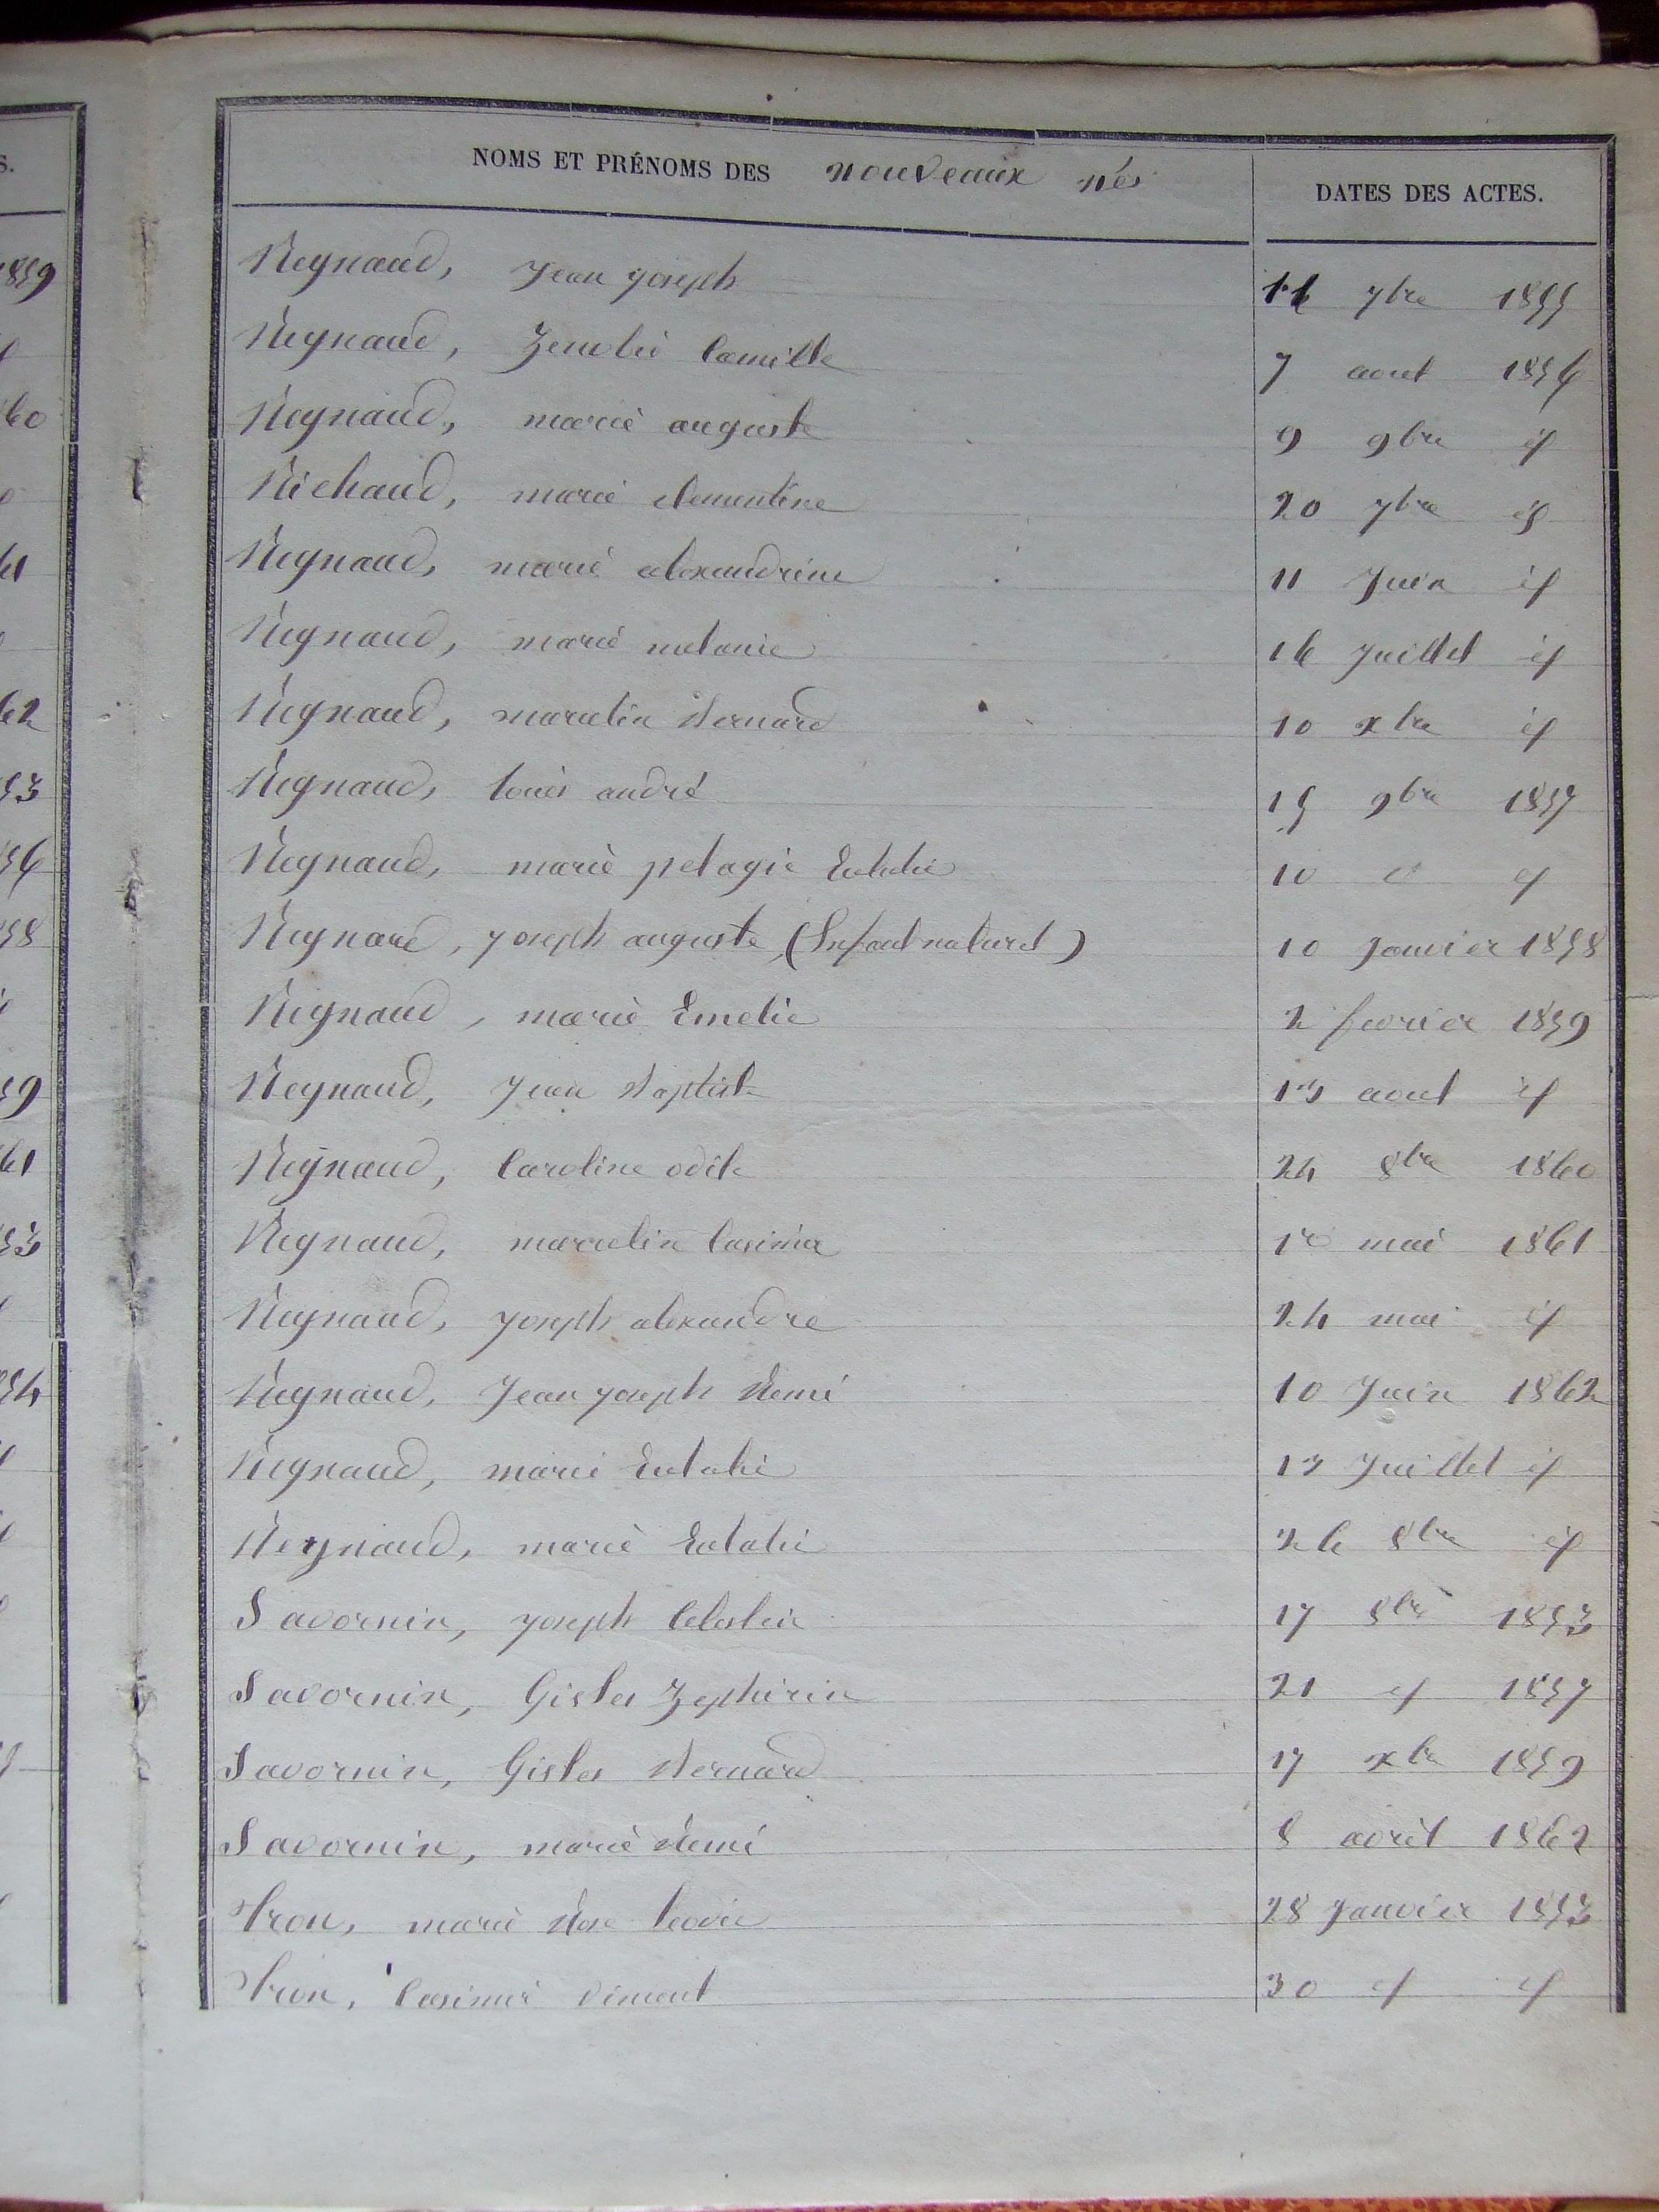 S.
1859
NOMS ET PRÉNOMS DES nouveaux nés
DATES DES ACTES.
Reynaud, Jean joseph 7bre 1855
Reynaud, Zenobie Camille 7 aout 1856
Reynaud, marie auguste 9 9bre id
Richaud, marie clementine 20 7bre id
Reynaud, marie alexandrine 11 Juin id
Reynaud, marie melanie 16 Juillet id
Reynaud, marcelin Bernard 10 xbre id
Reynaud, louis andré 15 9bre 1857
Reynaud, marie pelagie Eulalie 10 id
Reynard, joseph auguste, (Enfant naturel) 10 Janvier 1858
Reynaud, marie Emelie 2 fevrier 1859
Reynaud, Jean Baptiste 13 aout id
Reynaud, Caroline odile 24 8bre 1860
Reynaud, marcelin Casimir 1er mai 1861
Reynaud, joseph alexandre 24 mai id
Reynaud, Jean joseph Remi 10 Juin 1862
Reynaud, marie Eulalie 13 Juillet id
Reynaud, marie Eulalie 26 8bre id
Savornin, joseph Celestin 17 8bre 1853
Savornin, Zephirin 21 id 1857
Savornin, Bernard 17 xbre 1859
Savornin, marie Remi 8 avril 1862
Tron, marie Rose 28 Janvier 1853
Tron, Casimir 30 id id